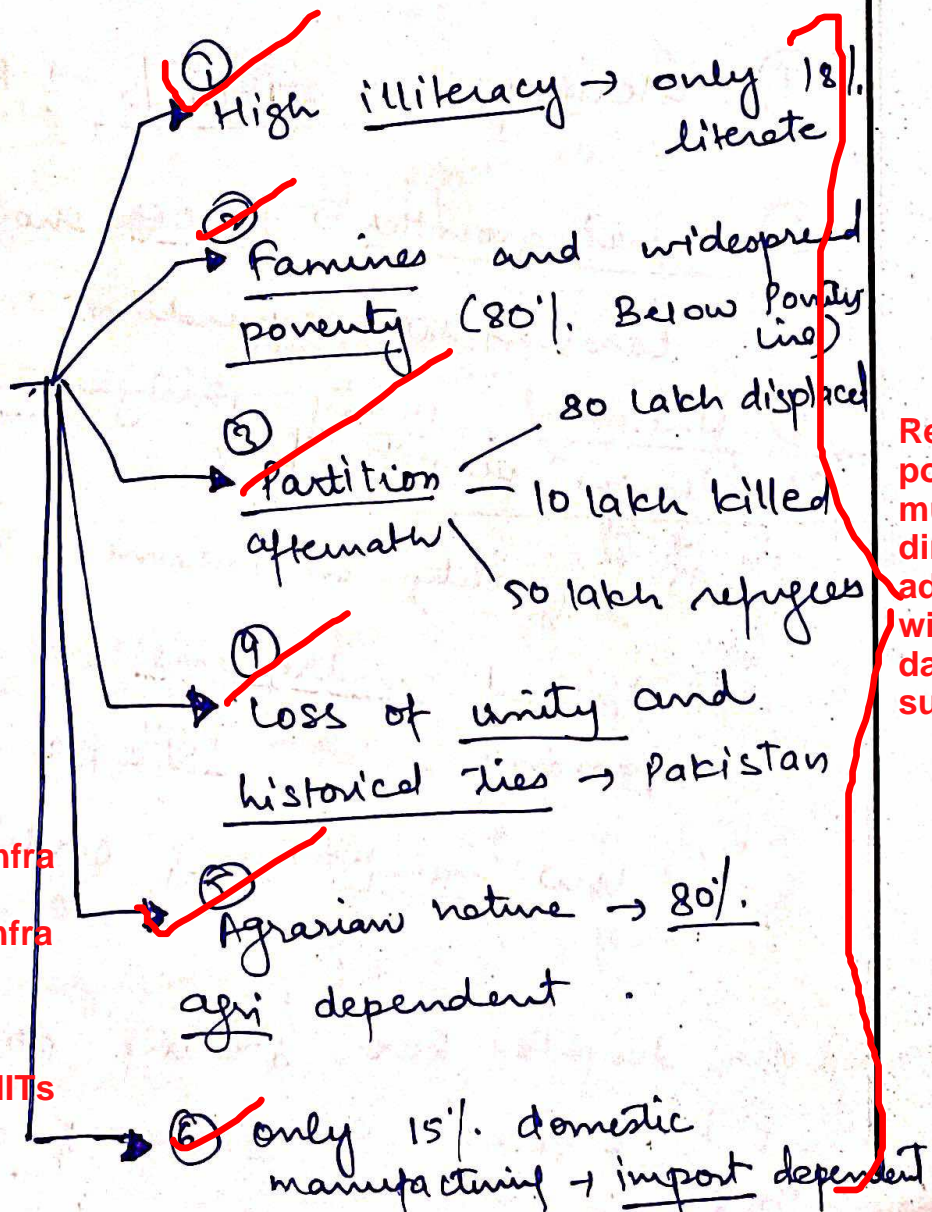 ① High illiteracy → only 18%.
literate
② Famines and widespread
poverty (80%. Below Poverty
Line)
③ Partition
aftermath
80 lakh displaced
10 lakh killed
50 lakh refugees
④ Loss of unity and
historical ties → Pakistan
⑤ Agrarian nature → 80%.
agri dependent.
⑥ only 15%. domestic
manufacturing → import dependent
nfra
nfra
IITs
Re
po
mu
di
ad
wi
da
su